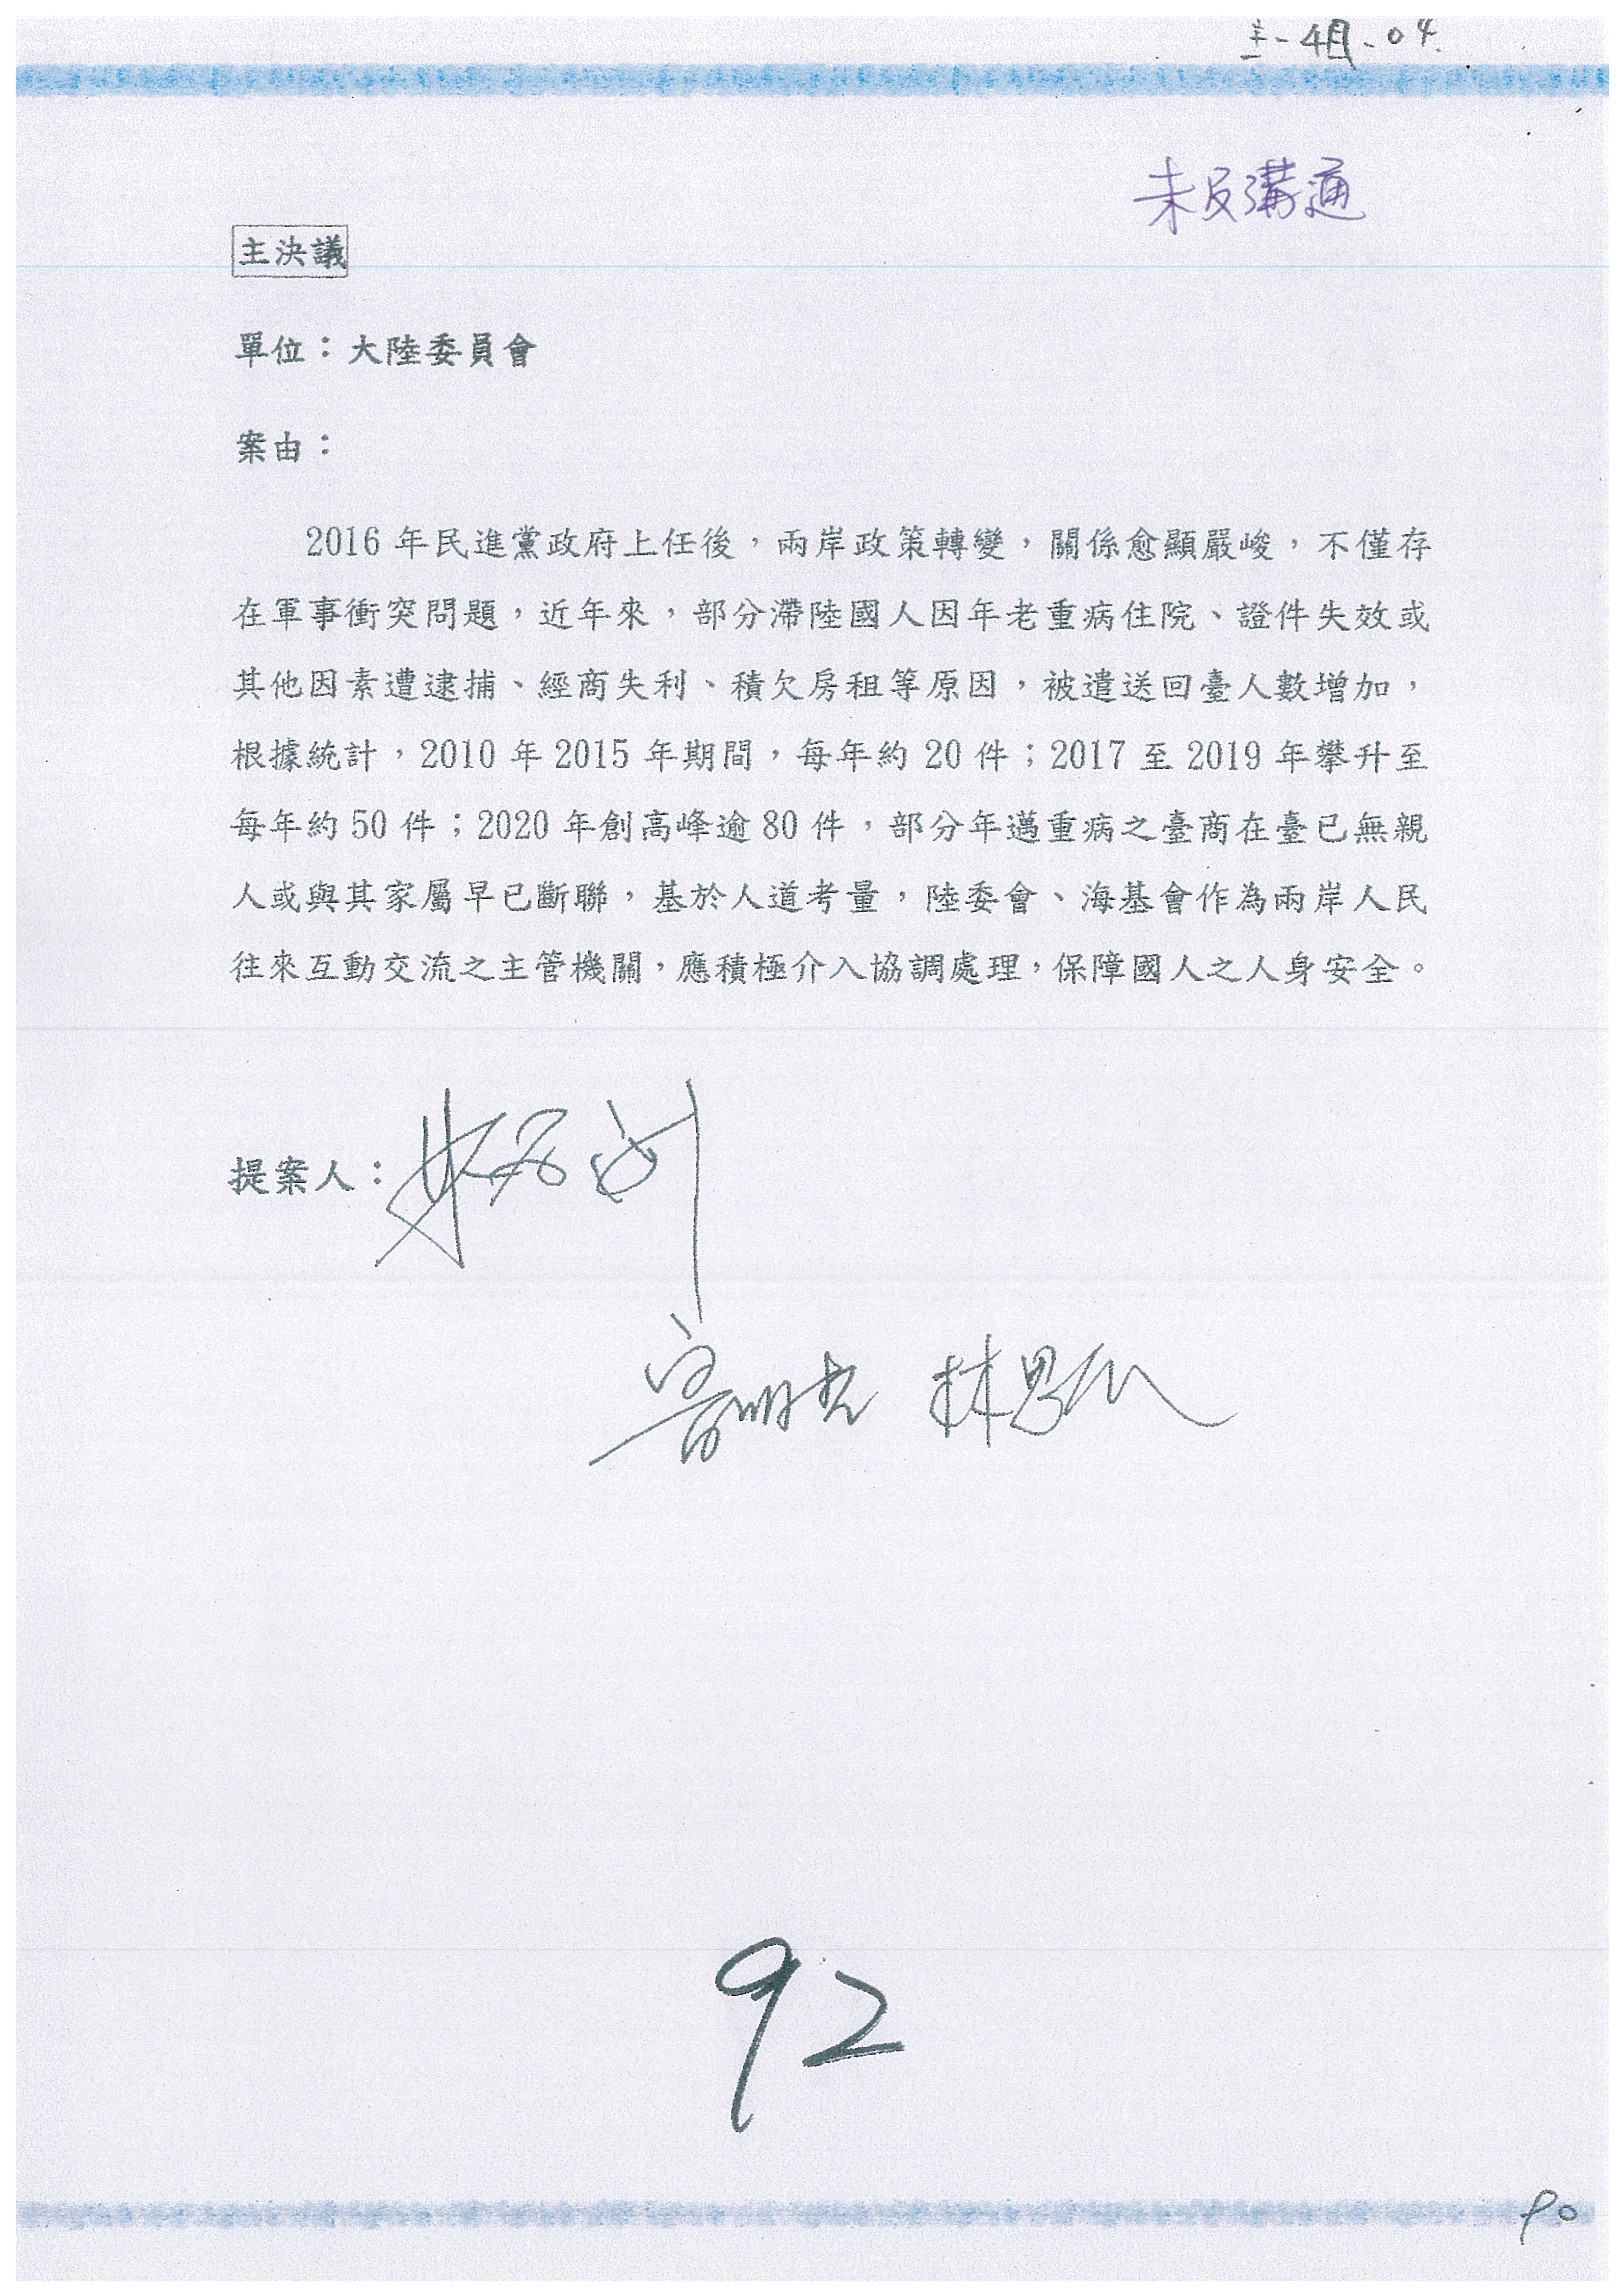 主-4組-04
未及溝通
主決議
單位：大陸委員會
案由：
2016 年民進黨政府上任後，兩岸政策轉變，關係愈顯嚴峻，不僅存
在軍事衝突問題，近年來，部分滯陸國人因年老重病住院、證件失效或
其他因素遭逮捕、經商失利、積欠房租等原因，被遣送回臺人數增加，
根據統計，2010 年 2015 年期間，每年約 20 件；2017 至 2019 年攀升至
每年約 50 件；2020 年創高峰逾 80 件，部分年邁重病之臺商在臺已無親
人或與其家屬早已斷聯，基於人道考量，陸委會、海基會作為兩岸人民
往來互動交流之主管機關，應積極介入協調處理，保障國人之人身安全。
提案人：
林思
92
90